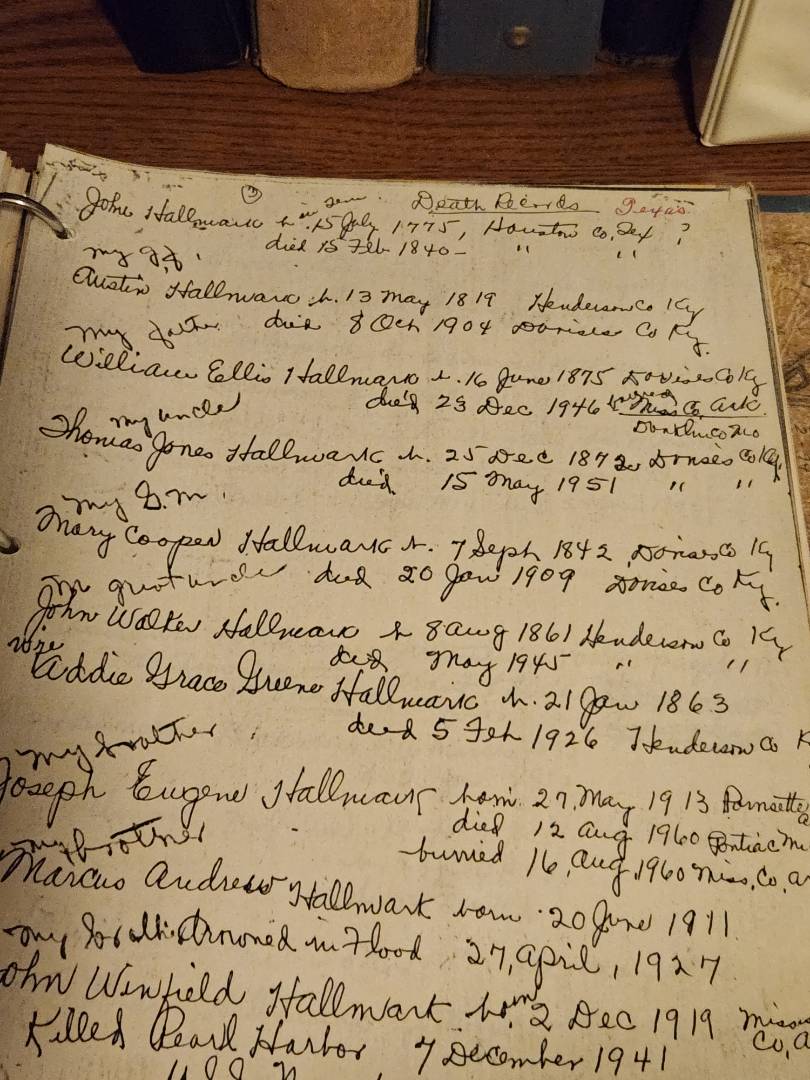 ③ Death Records Texas
John Hallmark b. in Tenn. 15 July 1775, Houston Co, Tex ?
died 15 Feb 1840 - " "
my g.f.
Austin Hallmark b. 13 May 1819 Henderson Co Ky
died 8 Oct 1904 Daviess Co Ky.
my father
William Ellis Hallmark b. 16 June 1875 Daviess Co Ky
died 23 Dec 1946 buried Miss Co, Ark.
Dunklin Co Mo
my uncle
Thomas Jones Hallmark b. 25 Dec 1872 Daviess Co Ky,
died 15 May 1951 " "
my G.M.
Mary Cooper Hallmark b. 7 Sept 1842 Daviess Co Ky
died 20 Jan 1909 Daviess Co Ky.
my great uncle
John Walker Hallmark b 8 Aug 1861 Henderson Co Ky
died May 1945 " "
Addie Grace Greene Hallmark b. 21 Jan 1863
died 5 Feb 1926 Henderson Co K
my brother
Joseph Eugene Hallmark born 27, May 1913
died 12 Aug 1960 Pontiac Mi
burried 16, Aug, 1960 Miss, Co, ar
my brother
Marcus Andrew Hallmark born 20 June 1911
Drowned in Flood 27, April, 1927
my brother
John Winfield Hallmark born 2 Dec 1919 Missis
Co, A
Killed Pearl Harbor 7 December 1941